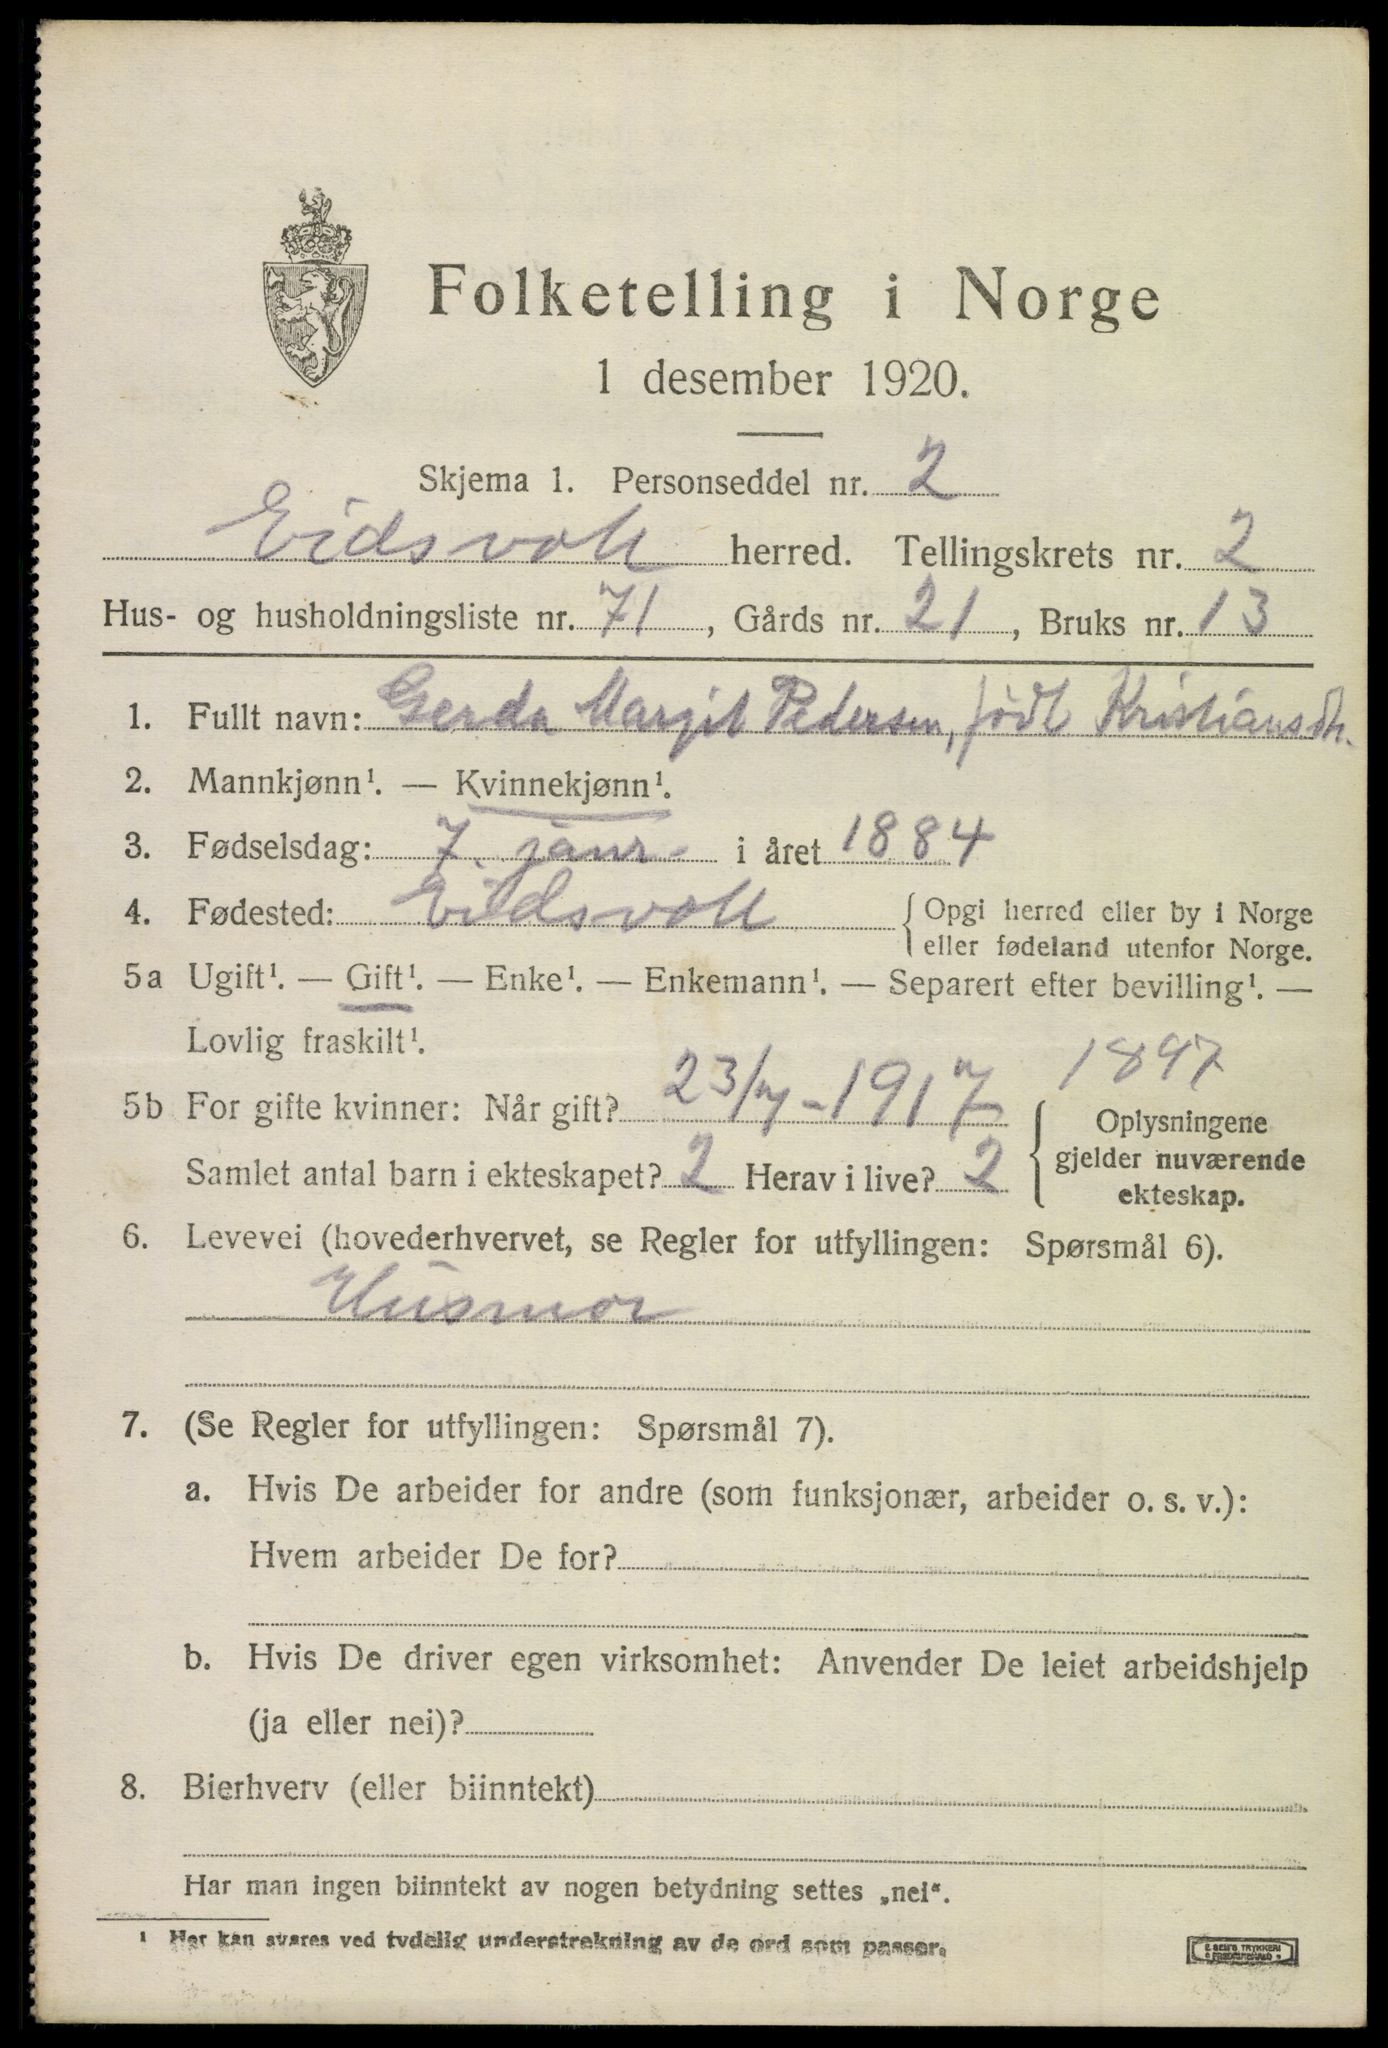 Folketelling i Norge
1 desember 1920.
Skjema 1. Personseddel nr. 2
Eidsvoll herred. Tellingskrets nr. 2
Hus- og husholdningsliste nr. 71, Gårds nr. 21, Bruks nr. 13
1. Fullt navn: Gerda Margit Pedersen, født Kristiansdtr.
2. Mannkjønn¹. — Kvinnekjønn¹.
3. Fødselsdag: 7. janr. i året 1884
4. Fødested: Eidsvoll { Opgi herred eller by i Norge
eller fødeland utenfor Norge.
5a Ugift¹. — Gift¹. — Enke¹. — Enkemann¹. — Separert efter bevilling¹. —
Lovlig fraskilt¹.
1897
5b For gifte kvinner: Når gift? 23/7-1917
Samlet antal barn i ekteskapet? 2 Herav i live? 2
{ Oplysningene
gjelder nuværende
ekteskap.
6. Levevei (hovederhvervet, se Regler for utfyllingen: Spørsmål 6).
Husmor
7. (Se Regler for utfyllingen: Spørsmål 7).
a. Hvis De arbeider for andre (som funksjonær, arbeider o. s. v.):
Hvem arbeider De for?
b. Hvis De driver egen virksomhet: Anvender De leiet arbeidshjelp
(ja eller nei)?
8. Bierhverv (eller biinntekt)
Har man ingen biinntekt av nogen betydning settes „nei“.
¹ Her kan svares ved tydelig understrekning av de ord som passer.
E. SEM'S TRYKKERI